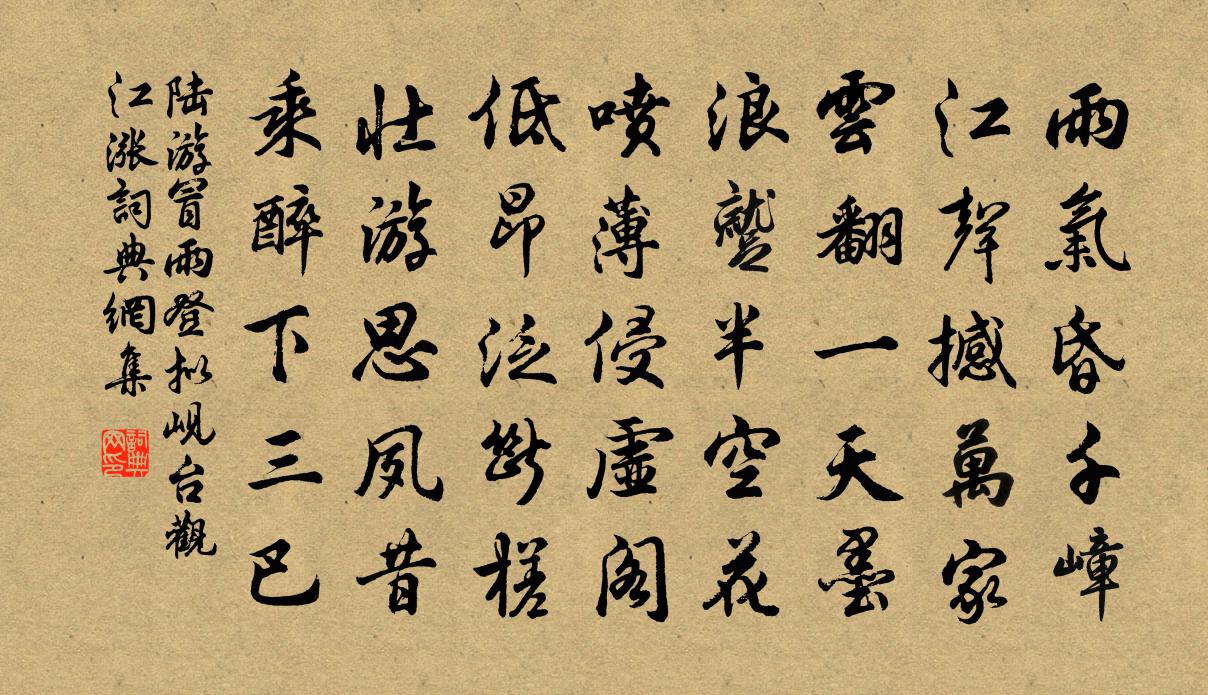 雨氣昏千嶂
江聲撼萬家
雲翻一天墨
浪蹙半空花
噴薄侵虛閣
低昂泛斷槎
壯游思夙昔
乘醉下三巴
陆游冒雨登拟岘台觀
江漲詞典網集
詞典網印